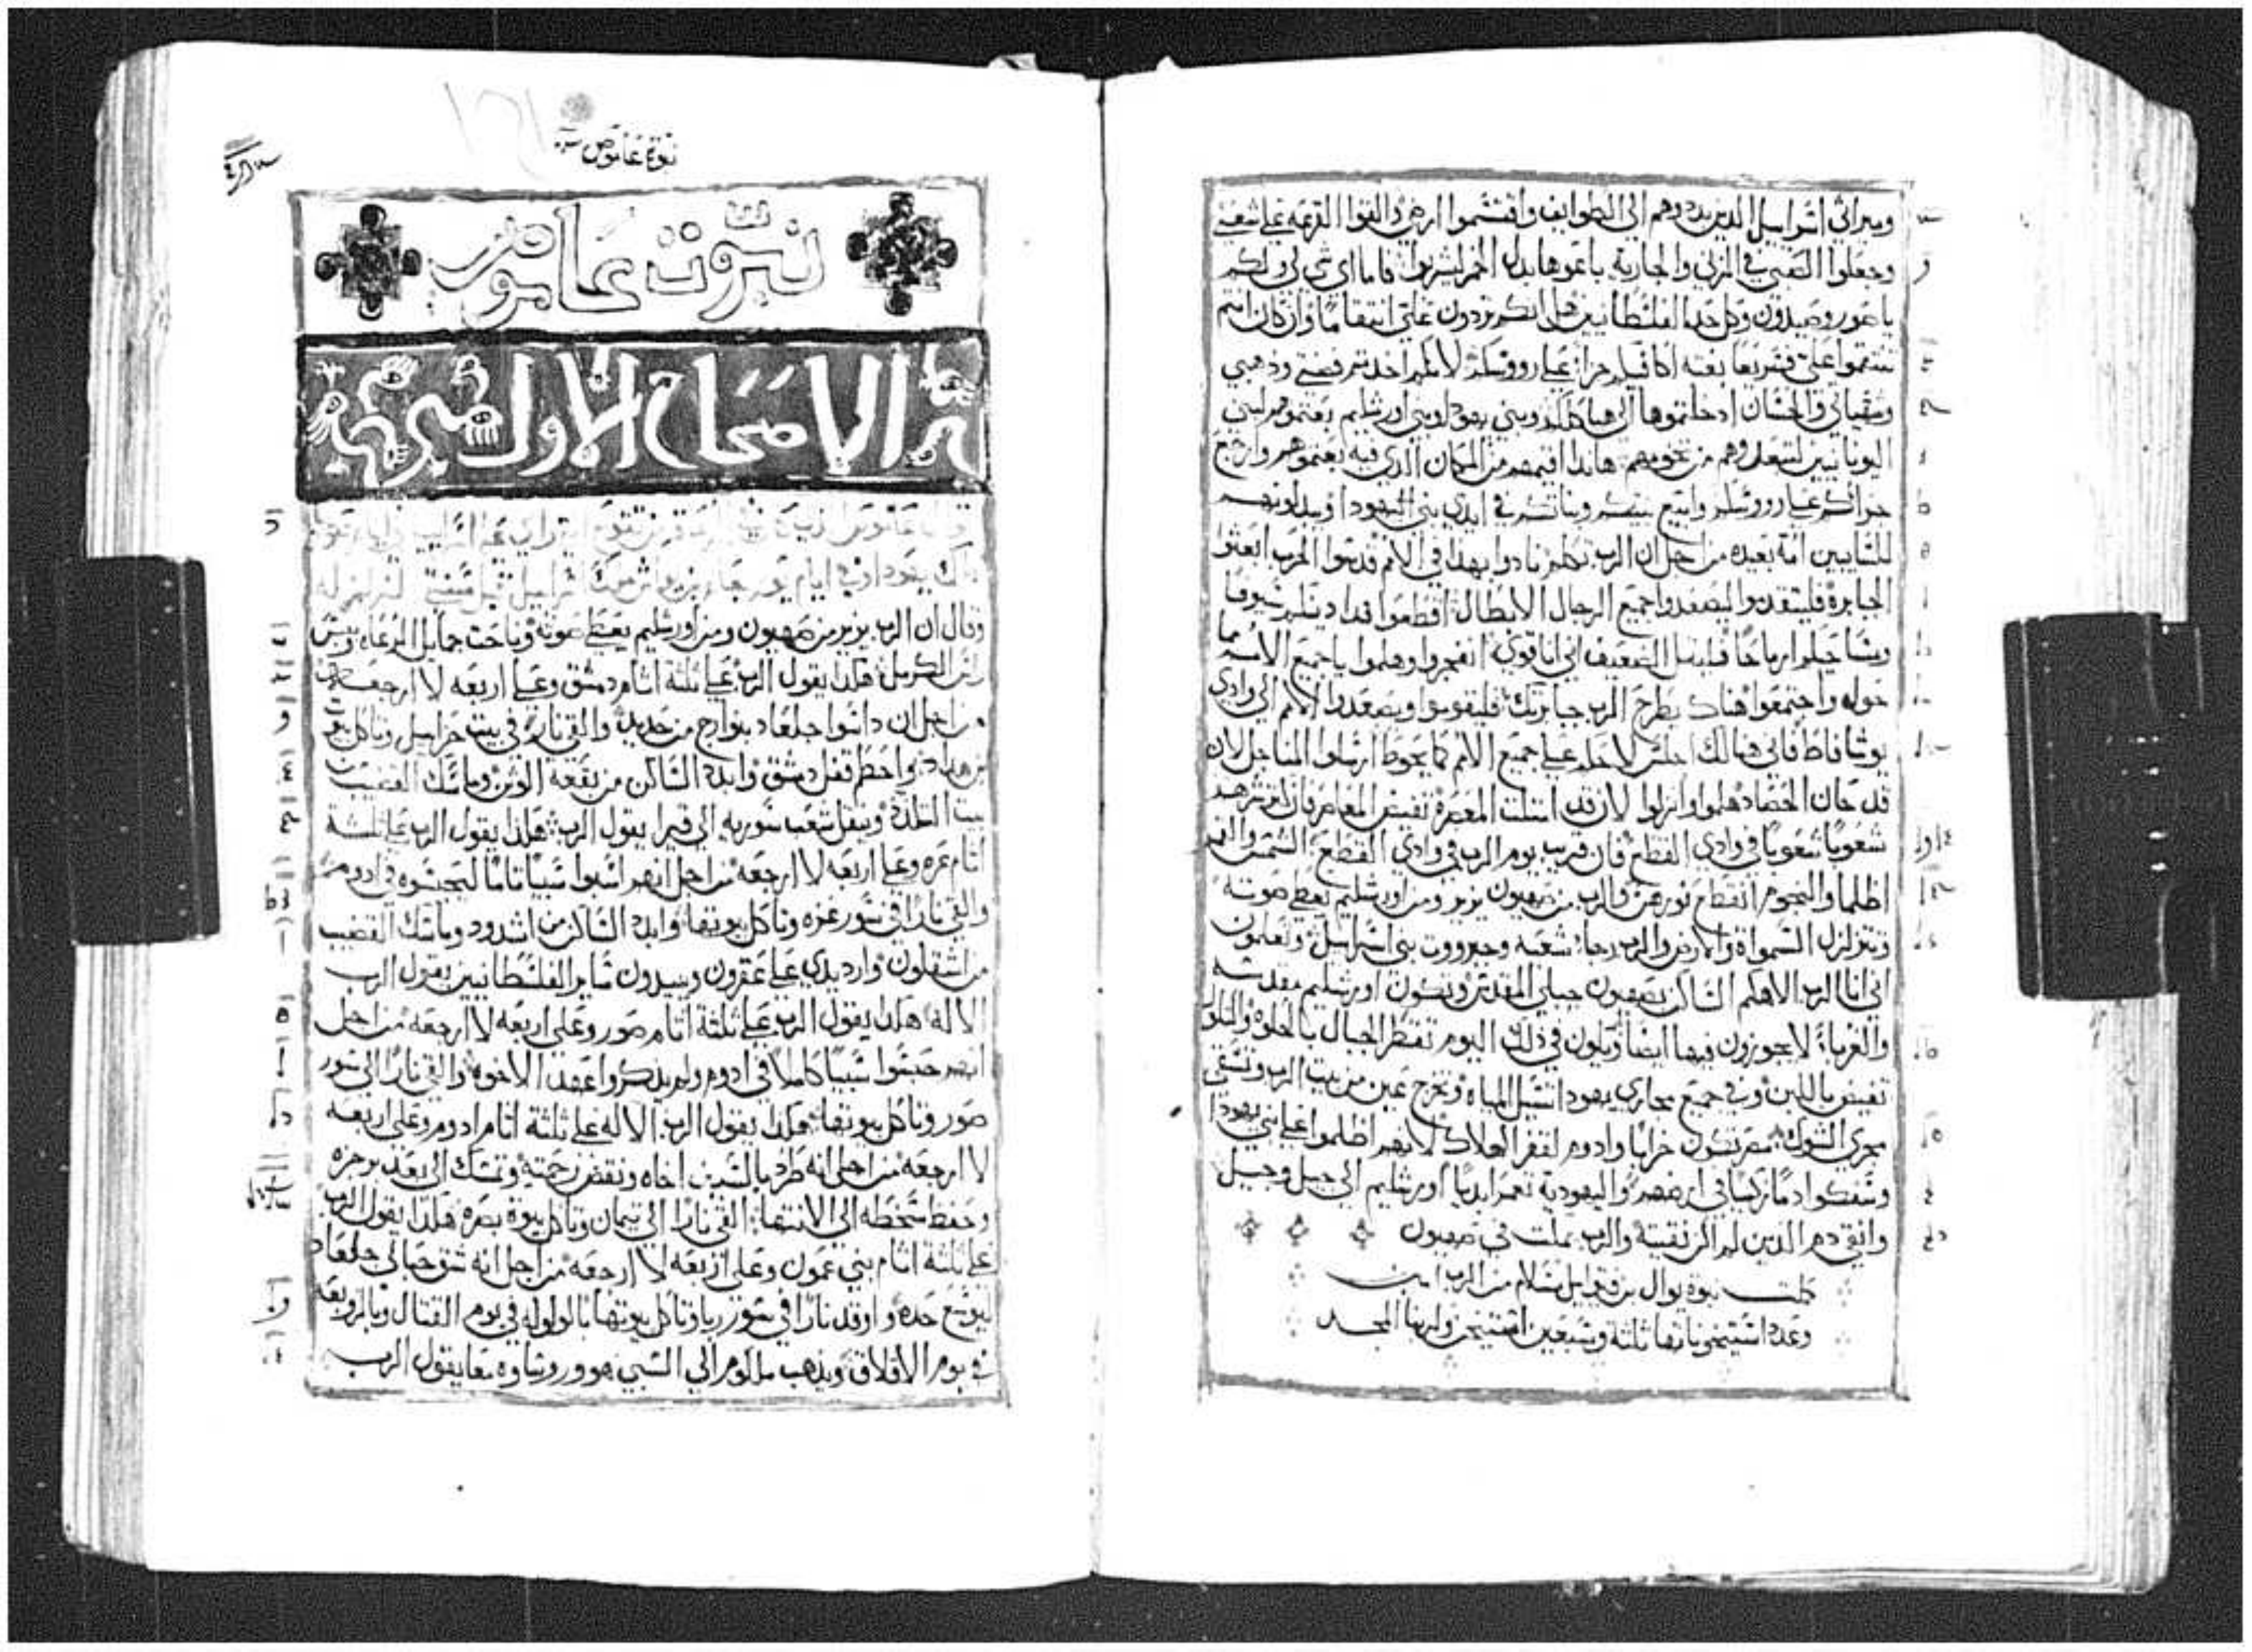 وميراثي اسراييل الذين بددوهم الى الطوايف واقتسموا ارضي والقوا القرعه على شعبي
وجعلوا الصبي في الزنى والجارية باعوها بدل الخمر ليشربوا فاما اي شي لي ولكم
يا صور وصيدون وكل حد الفلسطانيين هل انكم تردون علي انتقاما وان كان انتم
تنتقموا علي فسريعا بغته اكافيكم جزا على رووسكم لانكم اخدتم فضتي وذهبي
ومقتناتي والحسان ادخلتموها الى هياكلكم وبني يهودا وبني اورشليم بعتموهم لبني
اليونانيين لتبعدوهم من تخومهم هاندا اقيمهم من المكان الدي فيه بعتموهم وارجع
جزاكم على رووسكم وابيع بنيكم وبناتكم في ايدي بني اليهودا ويبيعونهم
للسابيين امة بعيده من اجل ان الرب تكلم نادوا بهدا في الامم قدسوا الحرب ابعثوا
الجبابرة فليتقدموا ليصعدوا جميع الرجال الابطال اقطعوا فدادينكم سيوفا
ومناجلكم ارماحا فليقل الضعيف اني انا قوي انفجروا وهلموا يا جميع الامم مما
حوله واجتمعوا هناك يطرح الرب جبابرتك فليقوموا ويصعدوا الامم الى وادي
يوشافاط فاني هنالك اجلس لاحكم على جميع الامم كما يحوط ارسلوا المناجل لان
قد حان الحصاد هلموا وانزلوا لان قد امتلت المعصرة تفيض المعاصر فان كثر شرهم
شعوبا شعوبا في وادي القطع فان قريب يوم الرب في وادي القطع الشمس والقمر
اظلما والنجوم انقطع نورهن والرب من صهيون يزير ومن اورشليم يعطي صوته
وتتزلزل السمواة والارض والرب رجا شعبه وجبرووت بني اسراييل وتعلمون
اني انا الرب الاهكم الساكن بصهيون جبلي المقدس وتكون اورشليم مقدسه
والغربا لا يجوزون فيها ايضا ويكون في ذلك اليوم تقطر الجبال بالحلاوة والتلول
تفيض باللبن وفي جميع مجاري يهودا تسيل المياه وتخرج عين من بيت الرب وتسقي
مجرى الشوك مصر تكون خرابا وادوم لقفر الهلاك لانهم اظلموا على بني يهودا
وسفكوا دما زكيا في ارضهم واليهودية تعمر ابديا اورشليم الى جيل وجيل
وانقي دم الدين لم انقيه والرب يملك في صهيون
كملت نبوة يوال بن فتوايل بسلام من الرب امين
وعدد استيخوناتها ثلثة وسبعين استيخن ولربنا المجد
نبوة عاموص
نبوة عاموص
الاصحاح الاول
وقال ان الرب يزير من صهيون ومن اورشليم يعطي صوته وناحت جمايل الرعاه ويبس
راس الكرمل هكدا يقول الرب على ثلثة اثام دمشق وعلى اربعه لا ارجعه
من اجل ان داسوا جلعاد بنوارج من حديد والقي نارا في بيت حزاييل وتاكل بيوت
بن هداد واحطم قفل دمشق وابيد الساكن من بقعه الوثن وماسك القضيب من
بيت اللدة وينقل شعب سوريه الى قيرا يقول الرب هكدا يقول الرب على ثلثة
اثام غزه وعلى اربعه لا ارجعه من اجل انهم اسبوا سبيا تاما ليحبسوه في ادوم
والقي نارا في سور غزه وتاكل بيوتها وابيد الساكن من اشدود وماسك القضيب
من اشقلون وارد يدي على عقرون ويبيدون ساير الفلسطانيين يقول الرب
الاله هكدا يقول الرب على ثلثة اثام صور وعلى اربعه لا ارجعه من اجل
انهم حبسوا سبيا كاملا في ادوم ولم يدكروا عهد الاخوه والقي نارا الى سور
صور وتاكل بيوتها هكدا يقول الرب الاله على ثلثة اثام ادوم وعلى اربعه
لا ارجعه من اجل انه طرد بالسيف اخاه ونقض رحمته وتمسك الى بعد برجزه
وحفظ سخطه الى الانتها القي نارا الى تيمان وتاكل بيوة بصره هكدا يقول الرب
على ثلثة اثام بني عمون وعلى اربعه لا ارجعه من اجل انه شق حبالى جلعاد
ليوسع حده واوقد نارا في سور ربا وتاكل بيوتها بالولوله في يوم القتال وبالزوبعه
في يوم الاقلاق ويدهب ملكوم الى السبي هو وروساوه معا يقول الرب